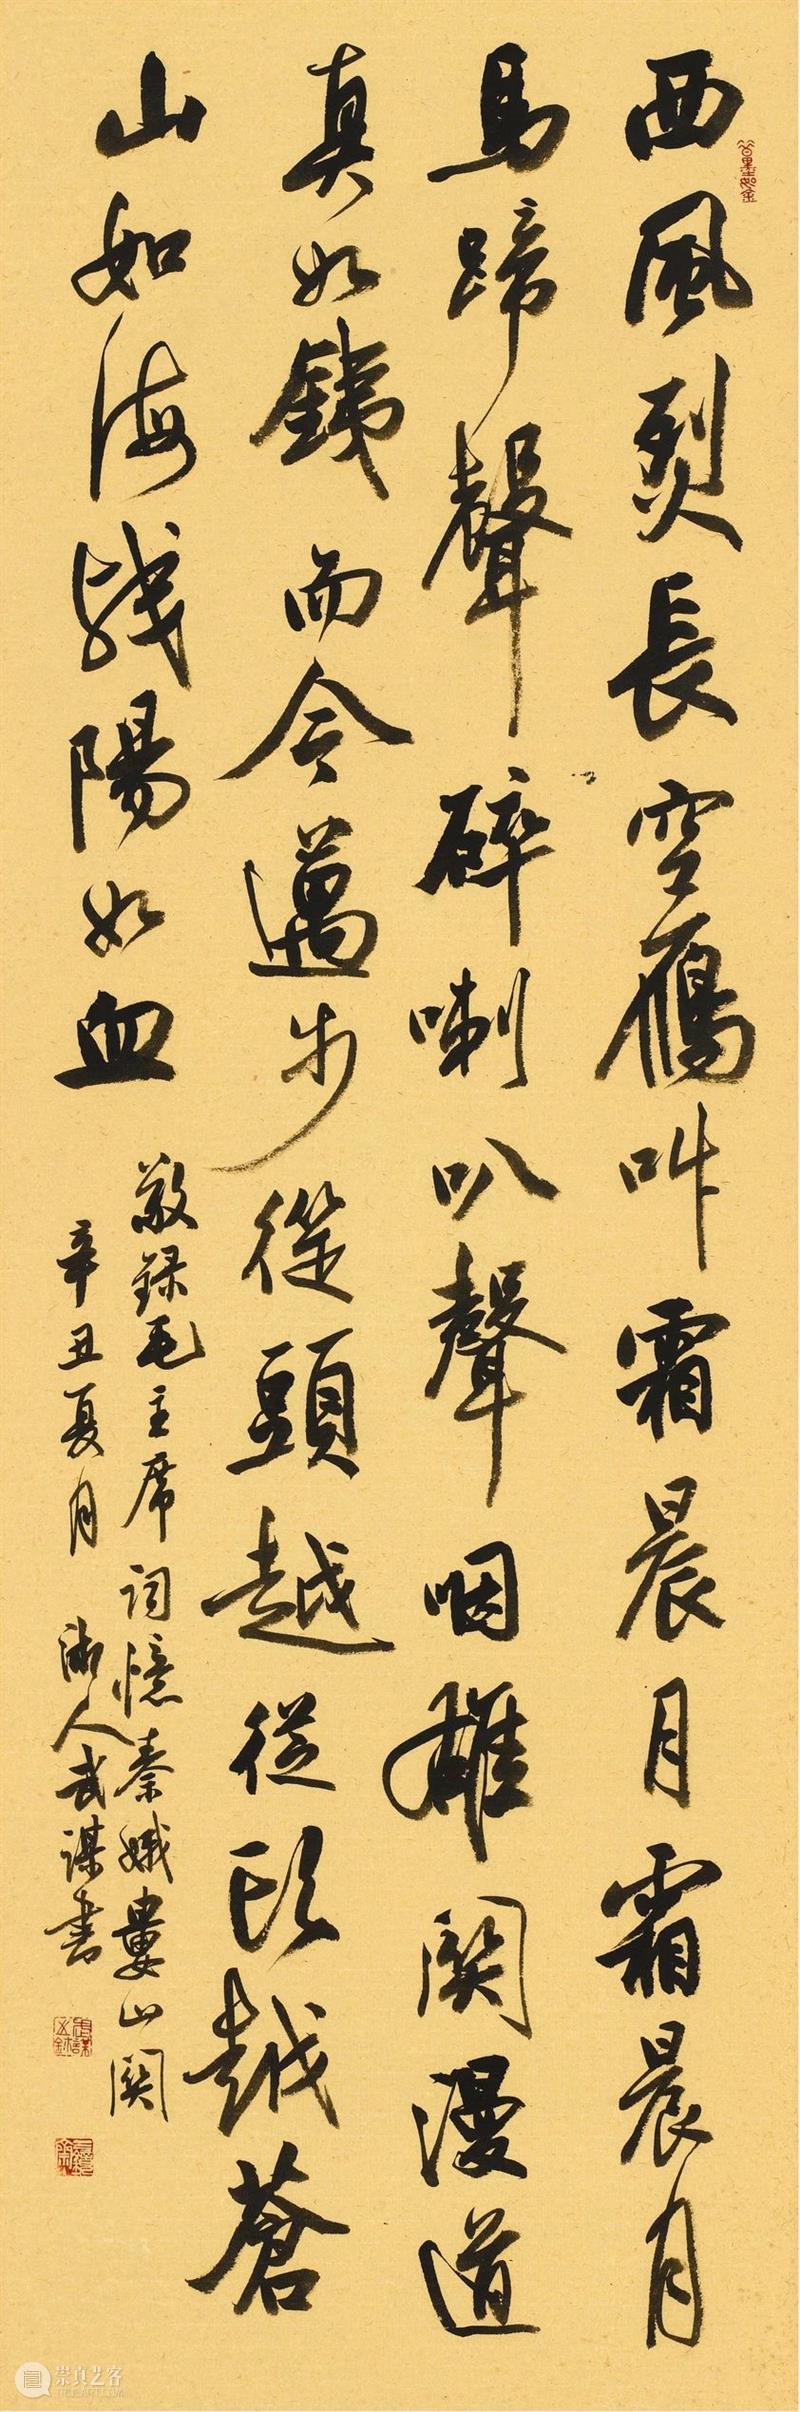 西風烈長空鴈叫霜晨月霜晨月
馬蹄聲碎喇叭聲咽雄関漫道
真如鐵而今邁步從頭越從頭越蒼
山如海残陽如血
敬録毛主席词憶秦娥婁山関
辛丑夏月 湖人武谋书
崇真艺客